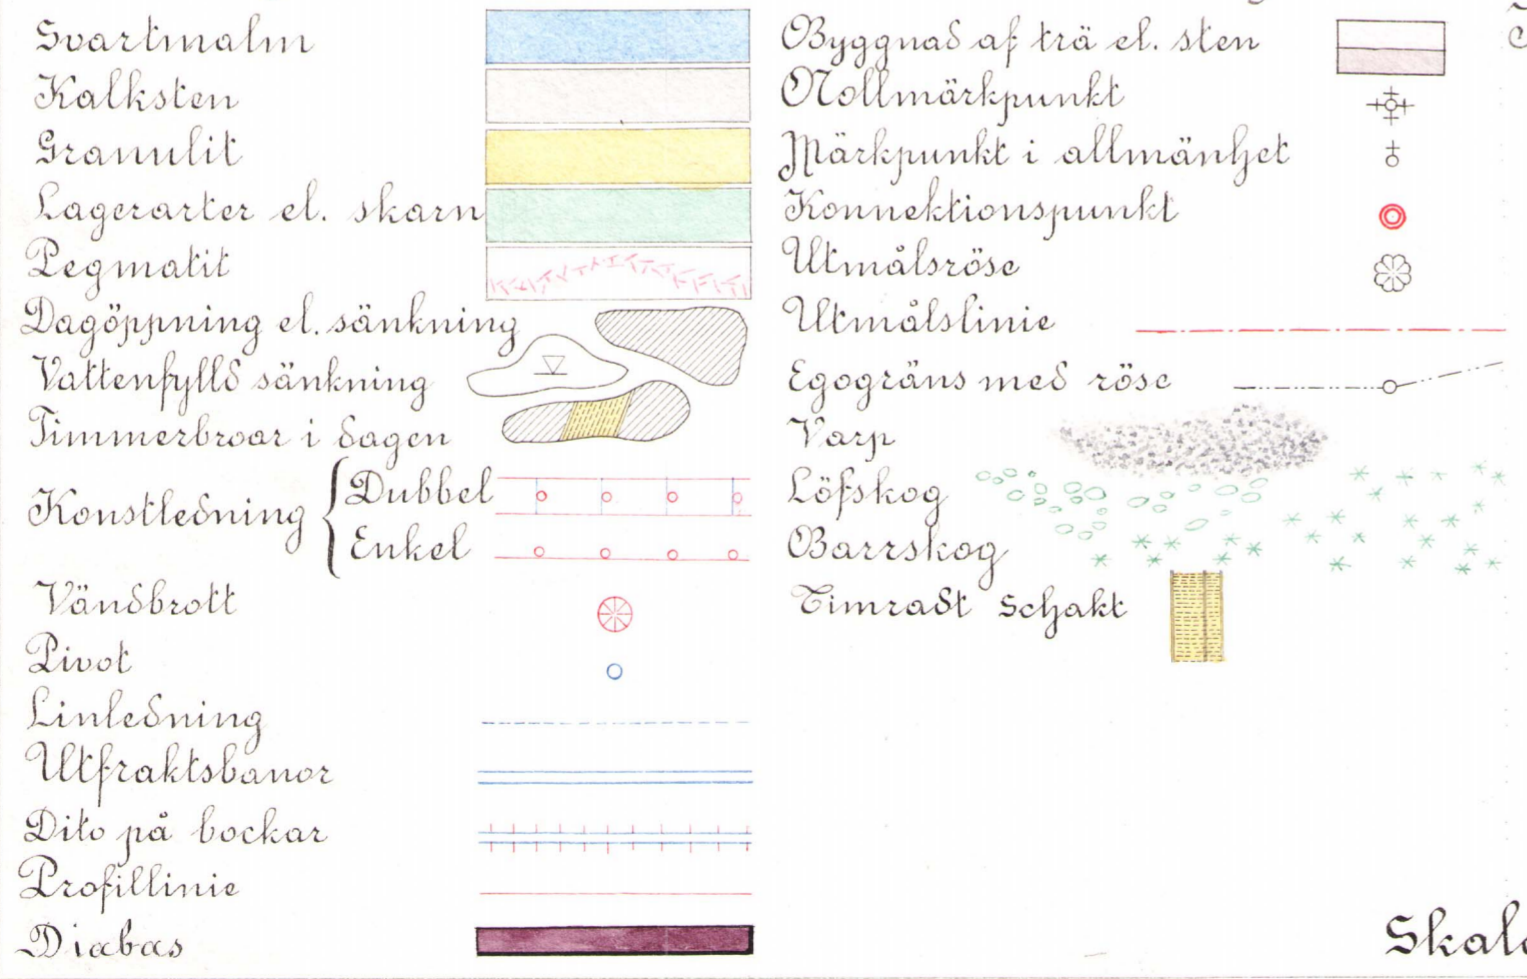 Svartmalm
Kalksten
Granulit
Lagerarter el. skarn
Pegmatit
Dagöppning el. sänkning
Vattenfylld sänkning
Timmerbroar i dagen
Konstledning { Dubbel
Enkel
Vändbrott
Pivot
Linledning
Utfraktsbanor
Dito på bockar
Profillinie
Diabas
Byggnad af trä el. sten
Nollmärkpunkt
Märkpunkt i allmänhet
Konnektionspunkt
Utmålsröse
Utmålslinie
Egogräns med röse
Varp
Löfskog
Barrskog
Timradt Schakt